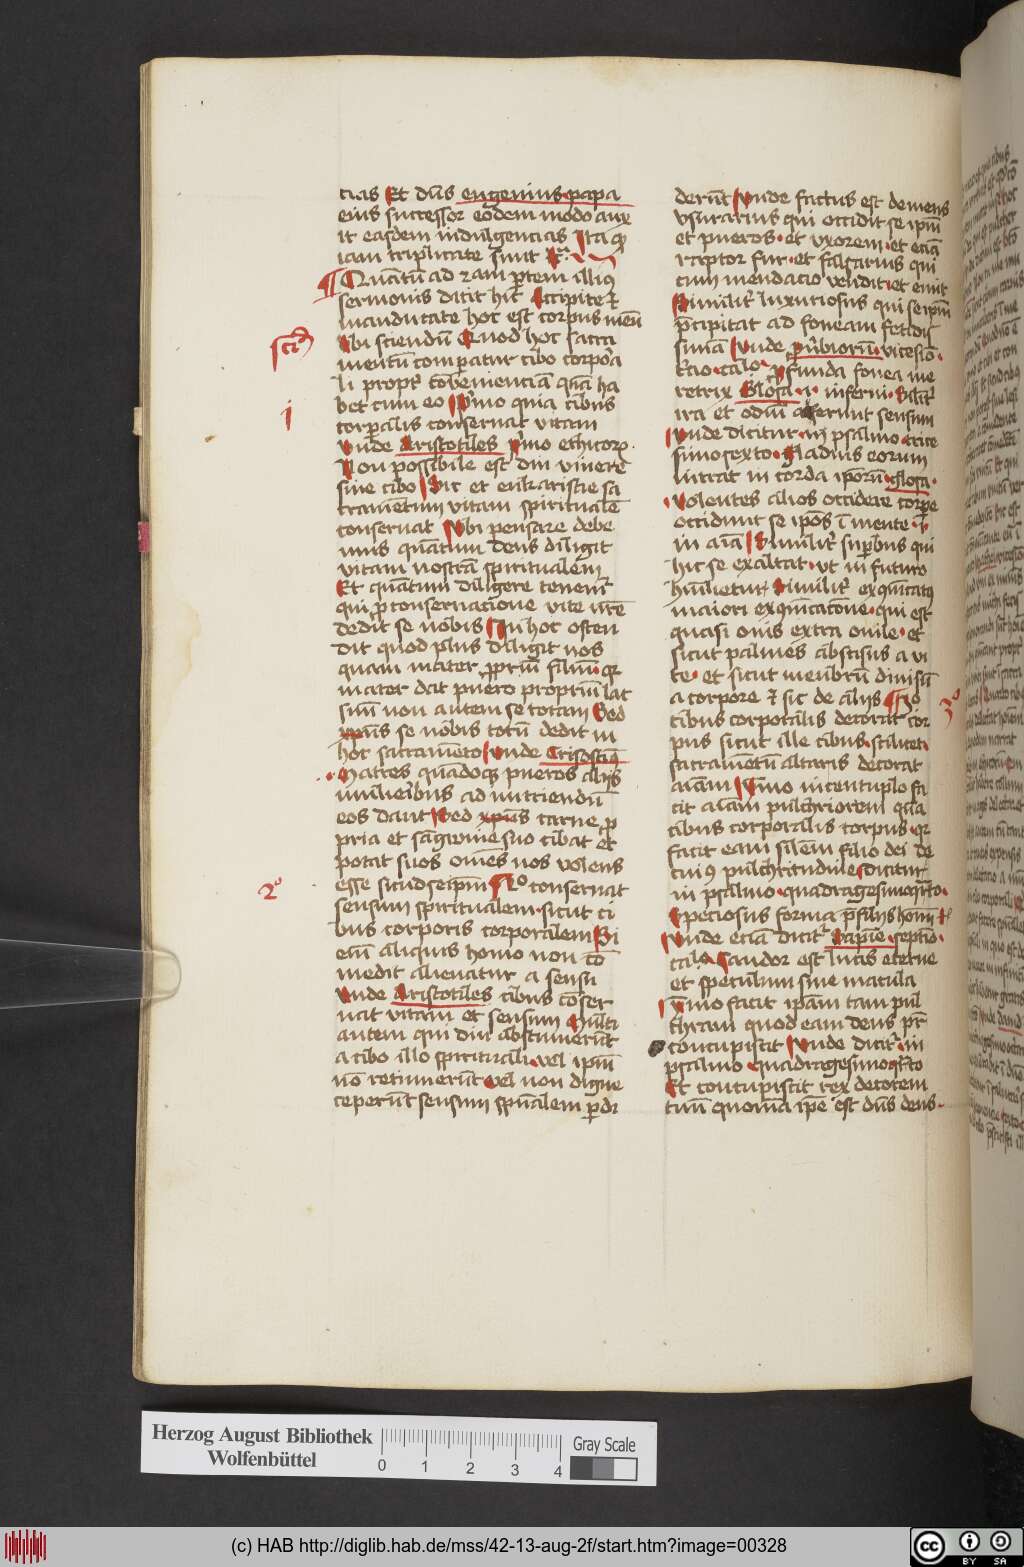 cias Et dn̄s eugenius papa
eius successor eodem modo aux
it easdem indulgencias Ita qͥ
iam triplicate sunt
Quātū ad 2am p̱tem illiꝰ
sermonis dicit hic Accipite ⁊
manducate hoc est corpus meū
Vbi sciendū Quod hoc sacra
mentū comparatur cibo corpora
li propt̄ cōvenienciā quā ha
bet cum eo Pͥmo quia cibus
corporalis conseruat vitam
Vnde Aristotiles pͥmo ethicorꝝ
Non possibile est diu viuere
sine cibo Sic et eukaristie sa
cramentum vitam spiritualē
conseruat Vbi pensare debe
mus quātum deus diligit
vitam nostrā spiritualem
Et quātum diligere tenemͬ
qui ꝓ conseruacione vite nr̄e
dedit se nobis In hoc osten
dit quod plus diligit nos
quam mater ꝓpriū filiū qꝛ
mater dat puero propriū lac
suū non autem se totam Sed
xpūs se nobis totū dedit in
hoc sacramēto Vnde Crisostiꝰ
Matres quādoqꝫ pueros alijs
mulieribus ad nutriendū
eos dant Sed xpūs carne ꝓ
pria et sāgwine suo cibat et
potat suos omēs nos volens
esse sicud seipm̄ 2o conseruat
sensum spiritualem sicut ci
bus corporis corporalem Si
enī aliquis homo non cō
medit alienatur a sensu
Vnde Aristotiles cibus cōser
uat vitam et sensum Multi
autem qui diu abstinuerūt
a cibo illo spirituali vel ipm̄
nō retinuerūt vel non digne
ceperūt sensum spūalem ꝑdi
derūt Vnde factus est demens
vsurarius qui occidit se ipm̄
et pueros et vxorem et eciā
raptor fur et falsarius qui
cum mendacio vendit et emit
Similiͬ luxuriosus qui se ipm̄
p̄cipitat ad foueam fetidis
simā Vnde ꝓuͥbiorū vicesio
tc̄io calo Ꝓfunda fouea me
retrix Glosa .i. inferni Siliͬ
ira et odiū auferunt sensum
Vnde dicitur in psalmo trice
simosexto Gladius eorum
intrat in corda ipōrū glosa
Volentes alios occidere corpe
occidunt se ipōs ī mente
in aīa Similiͬ supbus qui
hic se exaltat vt in futuro
humlietur Similiͬ excōicatꝰ
maiori excōicacōne qui est
quasi ouis extra ouile et
sicut palmes abscisus a vi
te et sicut menbrū diuisū
a corpore ⁊ sic de alijs 3o
cibus corporalis decorat cor
pus sicut ille cibus scilicet
sacramētū altaris decorat
aīam Ymo incentuplo fa
cit aīam pulchriorem quā
cibus corporalis corpus qꝛ
facit eam silem filio dei de
cuiꝰ pulchritudine dicitur
in psalmo quadragesimoqrͣto
Speciosus forma p̄ filijs homī
Vnde eciā dicitͬ Sapiē septīo
calo Candor est lucis eterne
et speculum sine macula
Ymo facit ipām tam pul
chram quod eam deus pr̄
concupiscit Vnde dicitͬ in
psalmo quadragesimoqrͣto
Et concupiscit rex decorem
tuū quoniā ipe est dn̄s deus
sciē
i
2o
3o
Herzog August Bibliothek
Wolfenbüttel
0 1 2 3 4
Gray Scale
(c) HAB http://diglib.hab.de/mss/42-13-aug-2f/start.htm?image=00328
cc BY SA